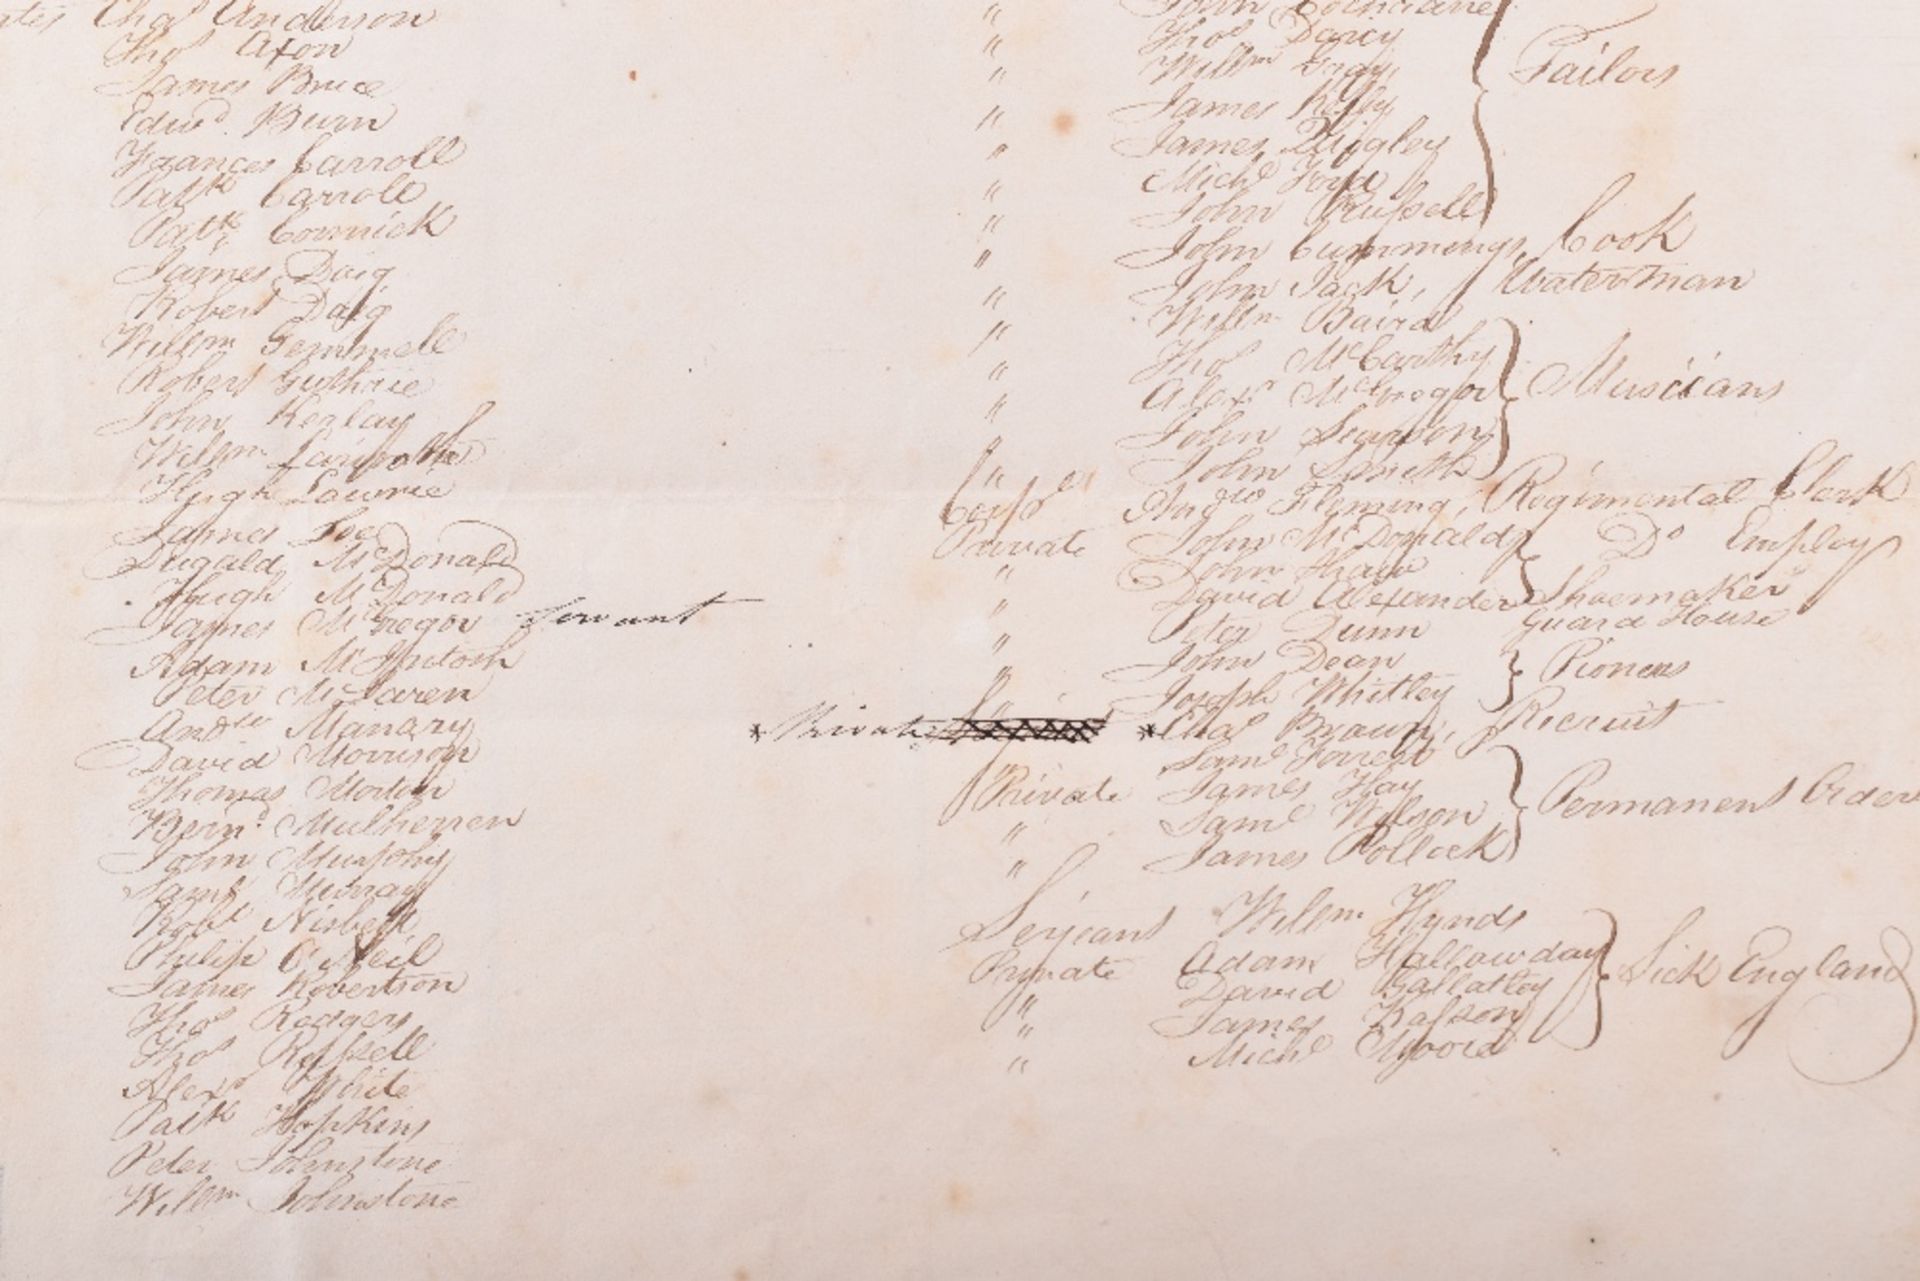 Chas Anderson
Thos Axon
James Bruce
Edwd. Burn
Frances Carroll
Patk Carroll
Patk Cormick
James Daig
Robert Daig
Willm Gemmell
Robert Guthrie
John Kerlay
Willm
Hugh Lawrie
James Lee
Dugald McDonald
Hugh McDonald
James McGregor Servant
Adam McIntosh
Peter McLaren
Andw Manary
David Morrison
Thomas Morton
Bernd. Mulherren
John Murphy
Saml Murray
Robt Nisbett
Philip O'Neil
James Robertson
Thos Rodgers
Thos Russell
Alexr White
Patk Hopkins
Peter Johnstone
Willm Johnstone
" John Cochrane
" Thos Darcy
" Willm Gray
" James Kelly
" James Quigley
" Michl Ford
" John Russell
Tailors
" John Cummings, Cook
" John Jack, Waterman
" Willm Baird
" Thos McCarthy
" Alexr McGregor
" John Searson
" John Smith
Musicians
Corpl Andw Fleming, Regimental Clerk
Private John McDonald
" John Shaw
Do Employ
" David Alexander Shoemaker
" Peter Dunn Guard House
" John Dean
" Joseph Whitley
Pioneers
* Private * Chas Brown, Recruit
" Saml Forrest
Private James Hay
" Saml Wilson
" James Pollock
Permanent Order
Serjeant Willm Hynds
Private Adam Hallowday
" David Gallatley
" James Kalson
" Michl Moore
Sick England